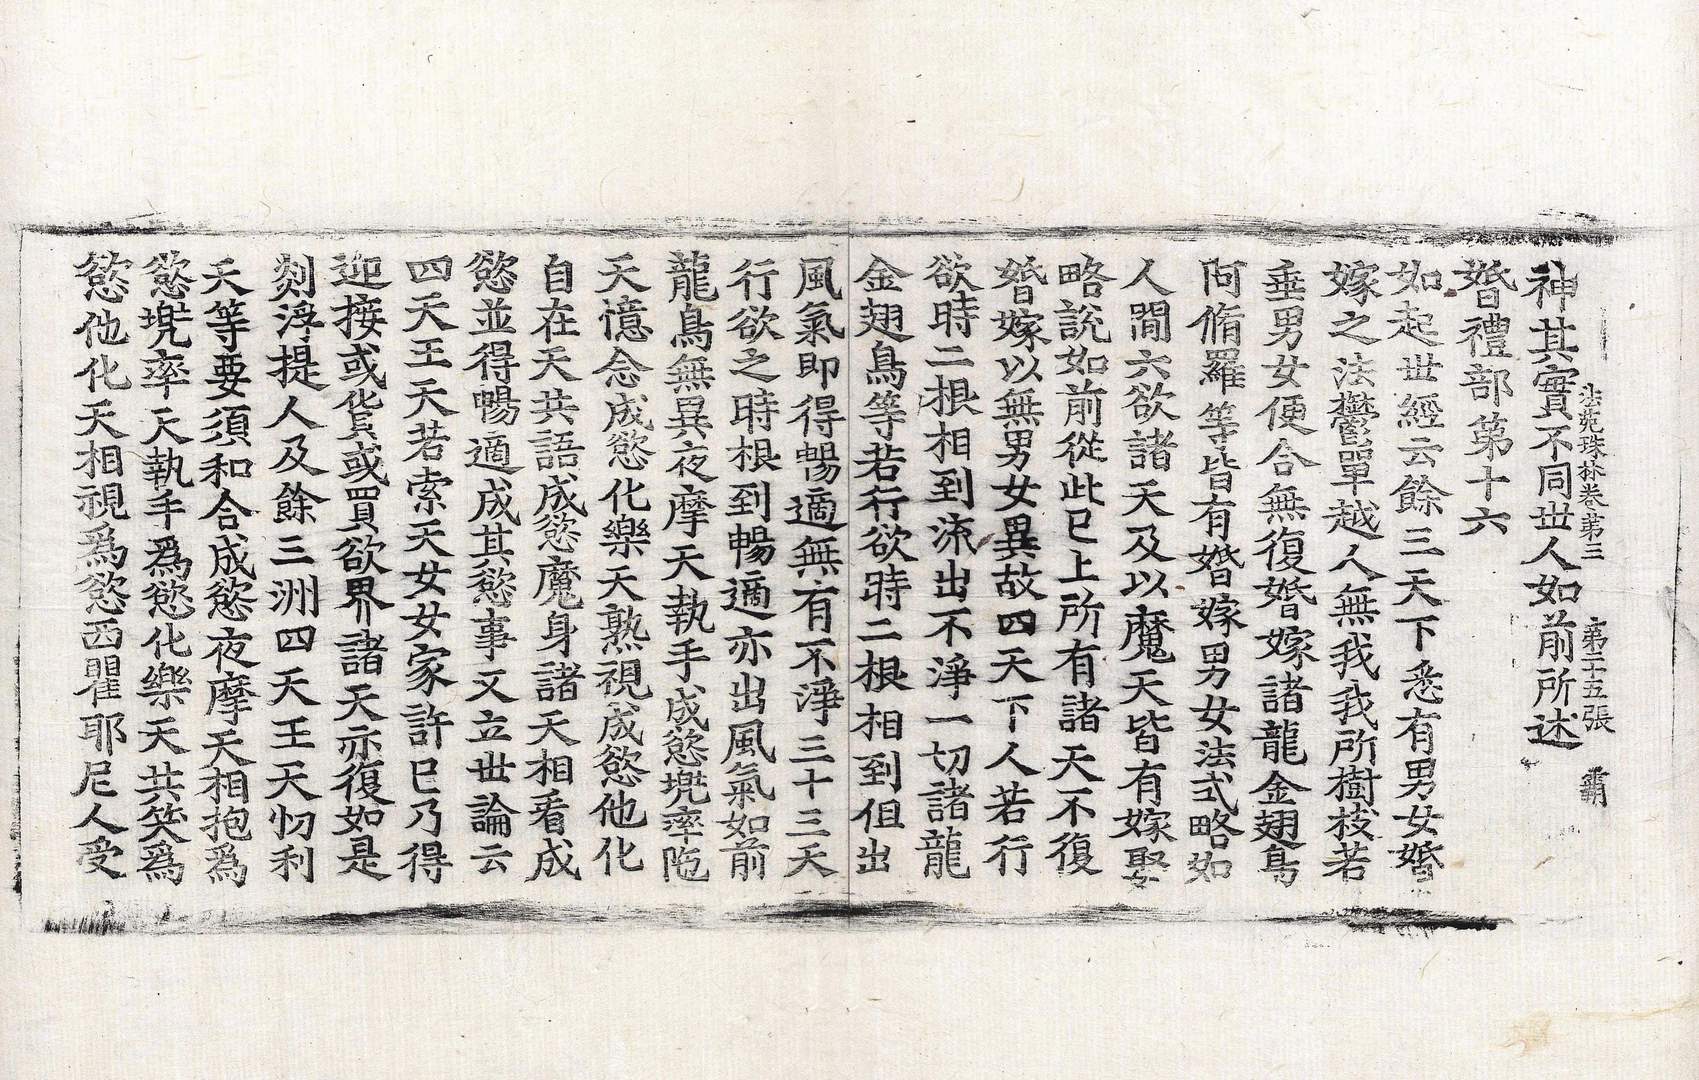 法苑珠林卷第三　第二十五張　霸
神其實不同世人如前所述
婚禮部第十六
如起世經云餘三天下悉有男女婚
嫁之法欝單越人無我我所樹枝若
垂男女便合無復婚嫁諸龍金翅鳥
阿脩羅等皆有婚嫁男女法式略如
人間六欲諸天及以魔天皆有嫁娶
略說如前從此已上所有諸天不復
婚嫁以無男女異故四天下人若行
欲時二根相到流出不淨一切諸龍
金翅鳥等若行欲時二根相到但出
風氣即得暢適無有不淨三十三天
行欲之時根到暢適亦出風氣如前
龍鳥無異夜摩天執手成慾兜率陁
天憶念成慾化樂天熟視成慾他化
自在天共語成慾魔身諸天相看成
慾並得暢適成其慾事又立世論云
四天王天若索天女女家許已乃得
迎接或貨或買欲界諸天亦復如是
剡浮提人及餘三洲四天王天忉利
天等要須和合成慾夜摩天相抱爲
慾兜率天執手爲慾化樂天共笑爲
慾他化天相視爲慾西瞿耶尼人受